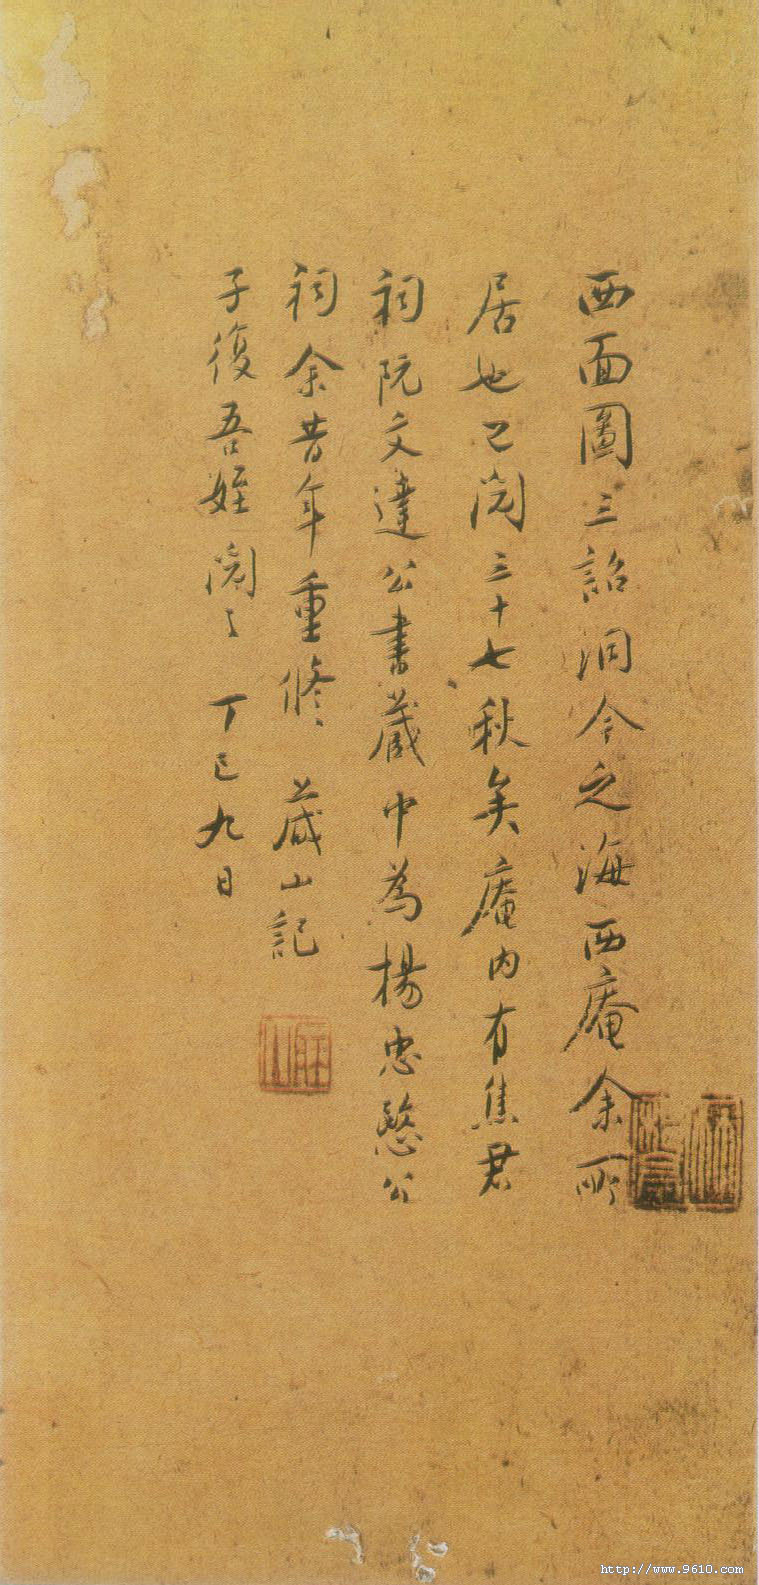 西面圖三詔洞今之海西庵余所
居也已閱三十七秋矣庵內有焦君
祠阮文達公書藏中為楊忠愍公
祠余昔年重修 蕺山記
子復吾姪閱之 丁巳九日
http://www.9610.com